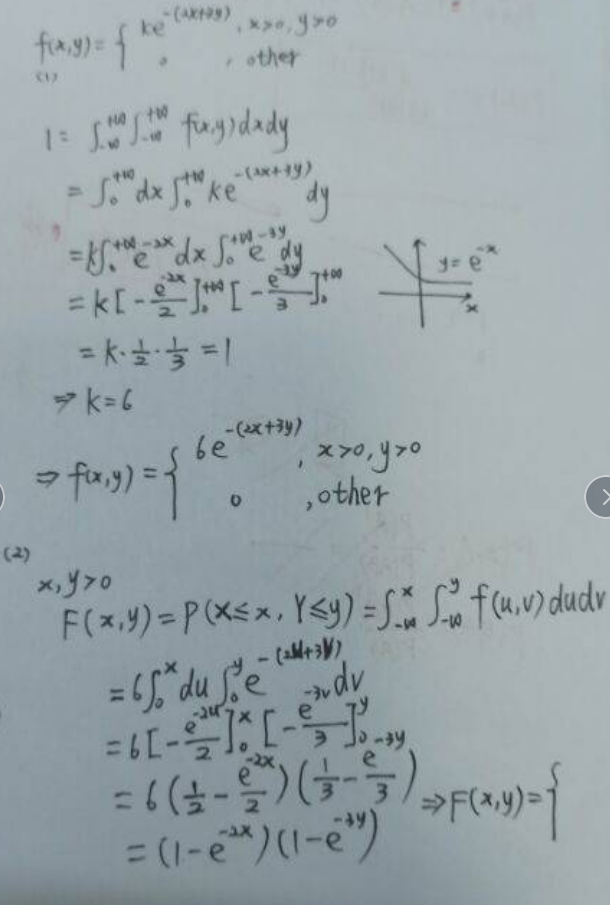 f(x,y) = { ke^{-(2x+3y)}, x>0, y>0
0, other
(1)
1 = ∫_{-∞}^{+∞} ∫_{-∞}^{+∞} f(x,y) dxdy
= ∫_0^{+∞} dx ∫_0^{+∞} ke^{-(2x+3y)} dy
= k∫_0^{+∞} e^{-2x} dx ∫_0^{+∞} e^{-3y} dy
y = e^{-x}
= k[-e^{-2x}/2]_0^{+∞} [-e^{-3y}/3]_0^{+∞}
x
= k·1/2·1/3 = 1
⇒ k=6
⇒ f(x,y) = { 6e^{-(2x+3y)}, x>0, y>0
0, other
(2)
x, y>0
F(x,y) = P(X≤x, Y≤y) = ∫_{-∞}^x ∫_{-∞}^y f(u,v) dudv
= 6∫_0^x du ∫_0^y e^{-(2u+3v)} dv
= 6[-e^{-2u}/2]_0^x [-e^{-3v}/3]_0^y
= 6(1/2 - e^{-2x}/2)(1/3 - e^{-3y}/3) ⇒ F(x,y) = {
= (1-e^{-2x})(1-e^{-3y})